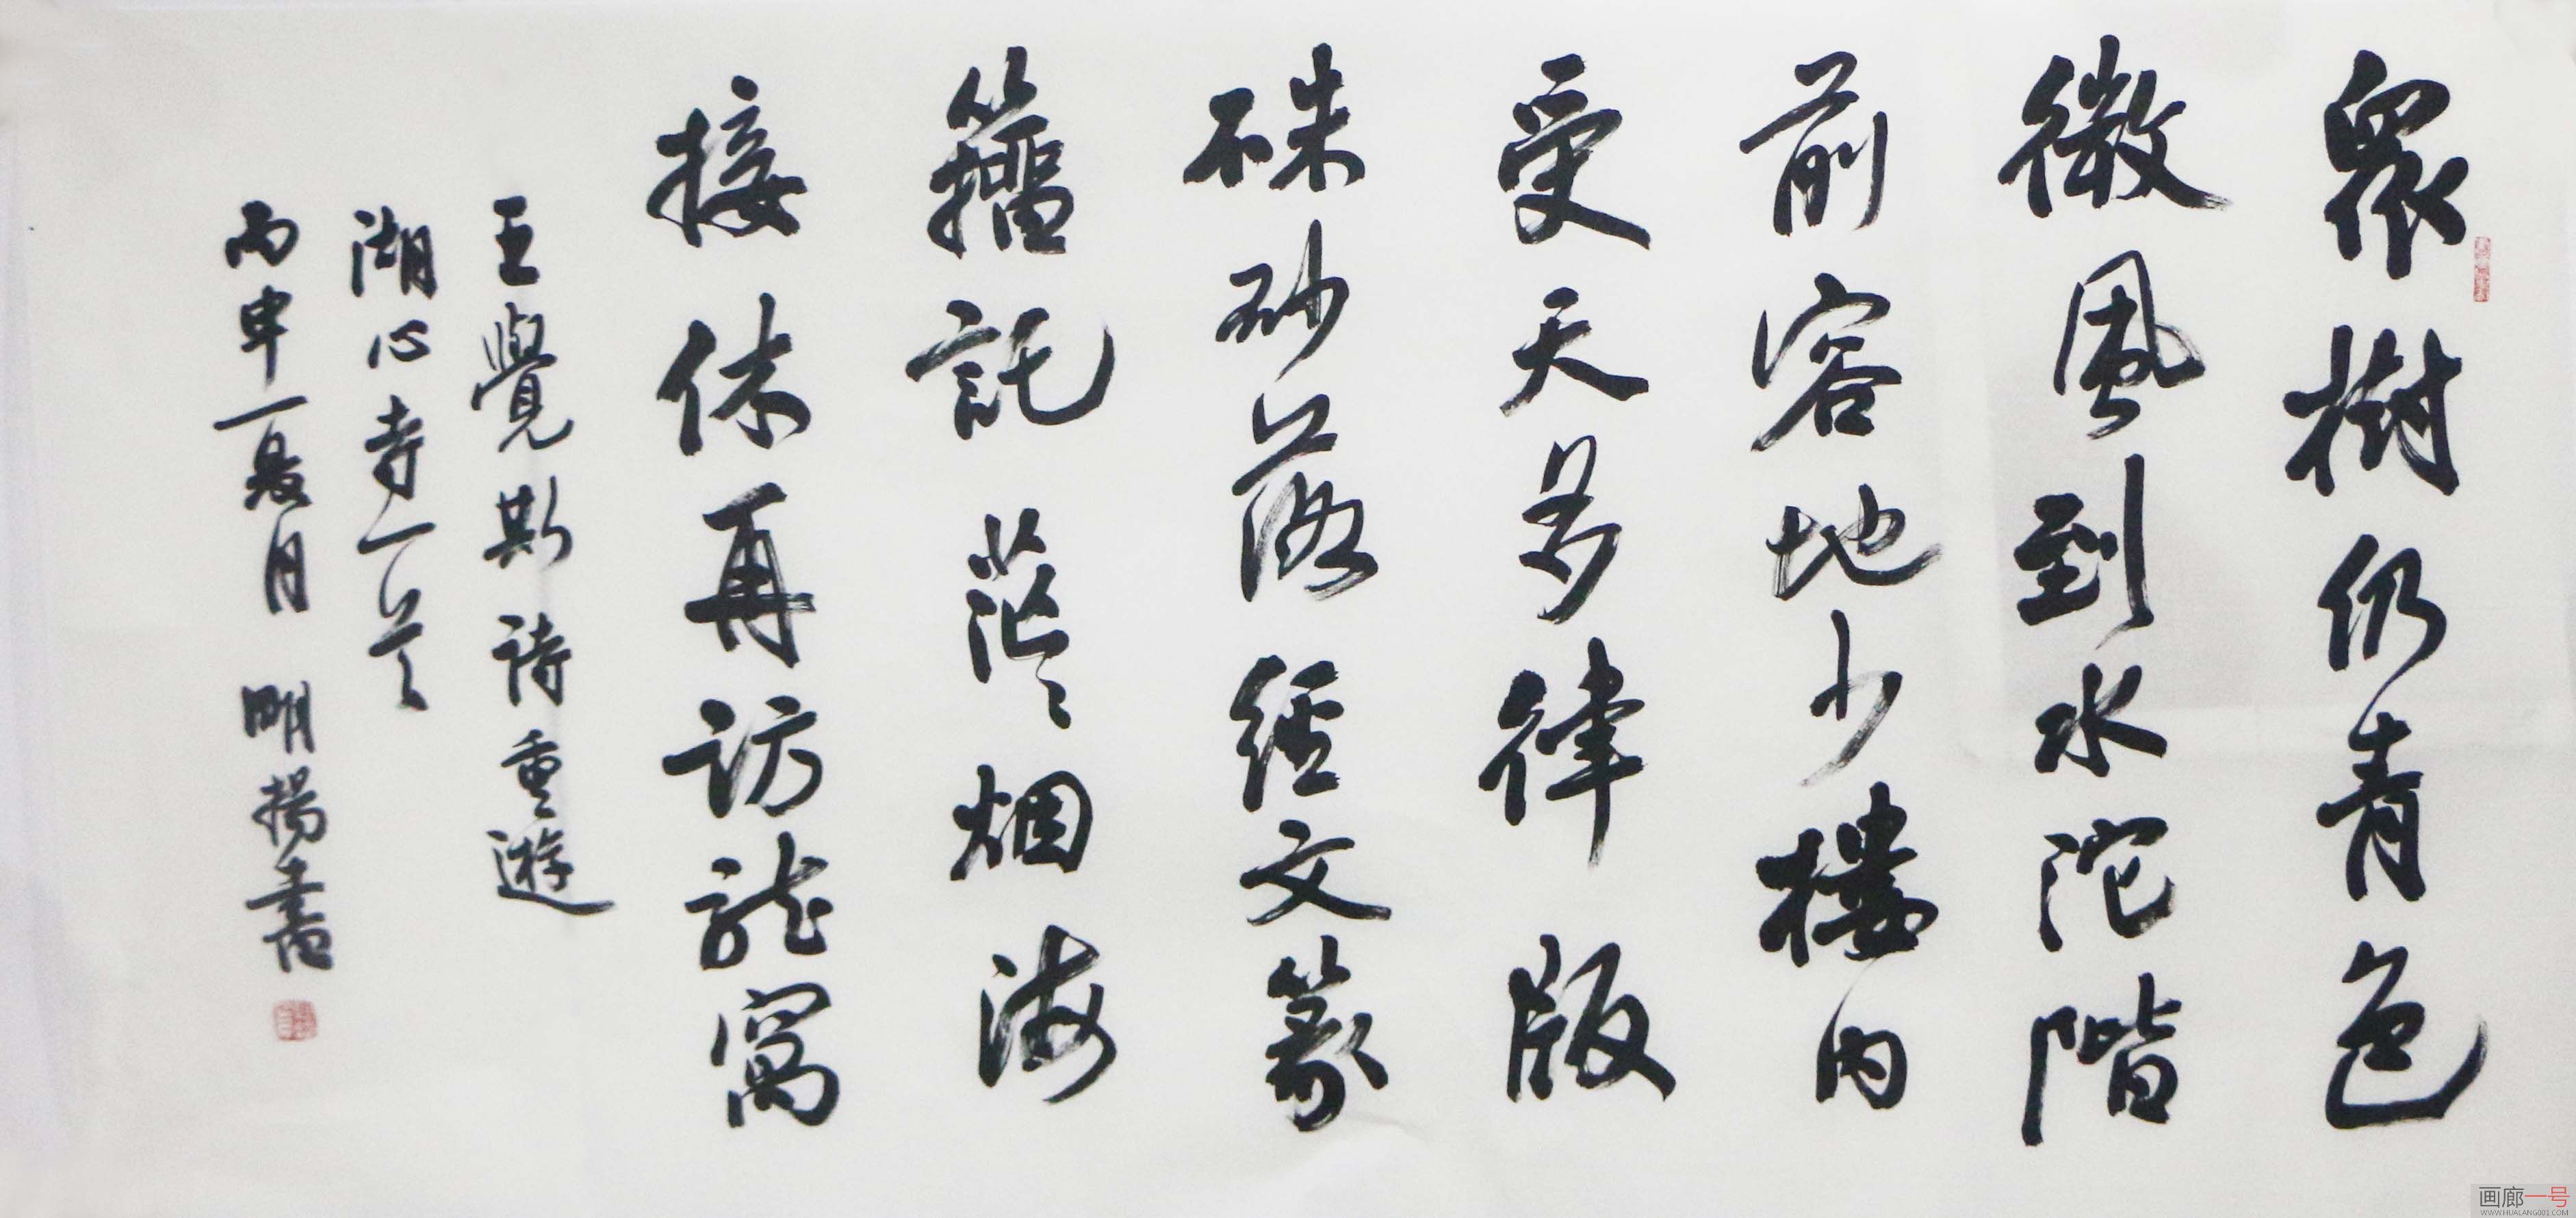 眾樹仍青色
微風到水沱階
前容地少樓内
受天多律版
硃砂落經文篆
籀訛茫茫烟海
接休再訪龍窩
王覺斯詩重遊
湖心寺一首
丙申夏月 明揚書
画廊一号
WWW.HUALANG001.COM